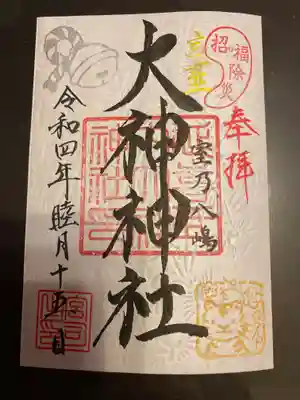 招福除災
奉拝
室乃八嶋
大神神社
令和四年睦月十五日